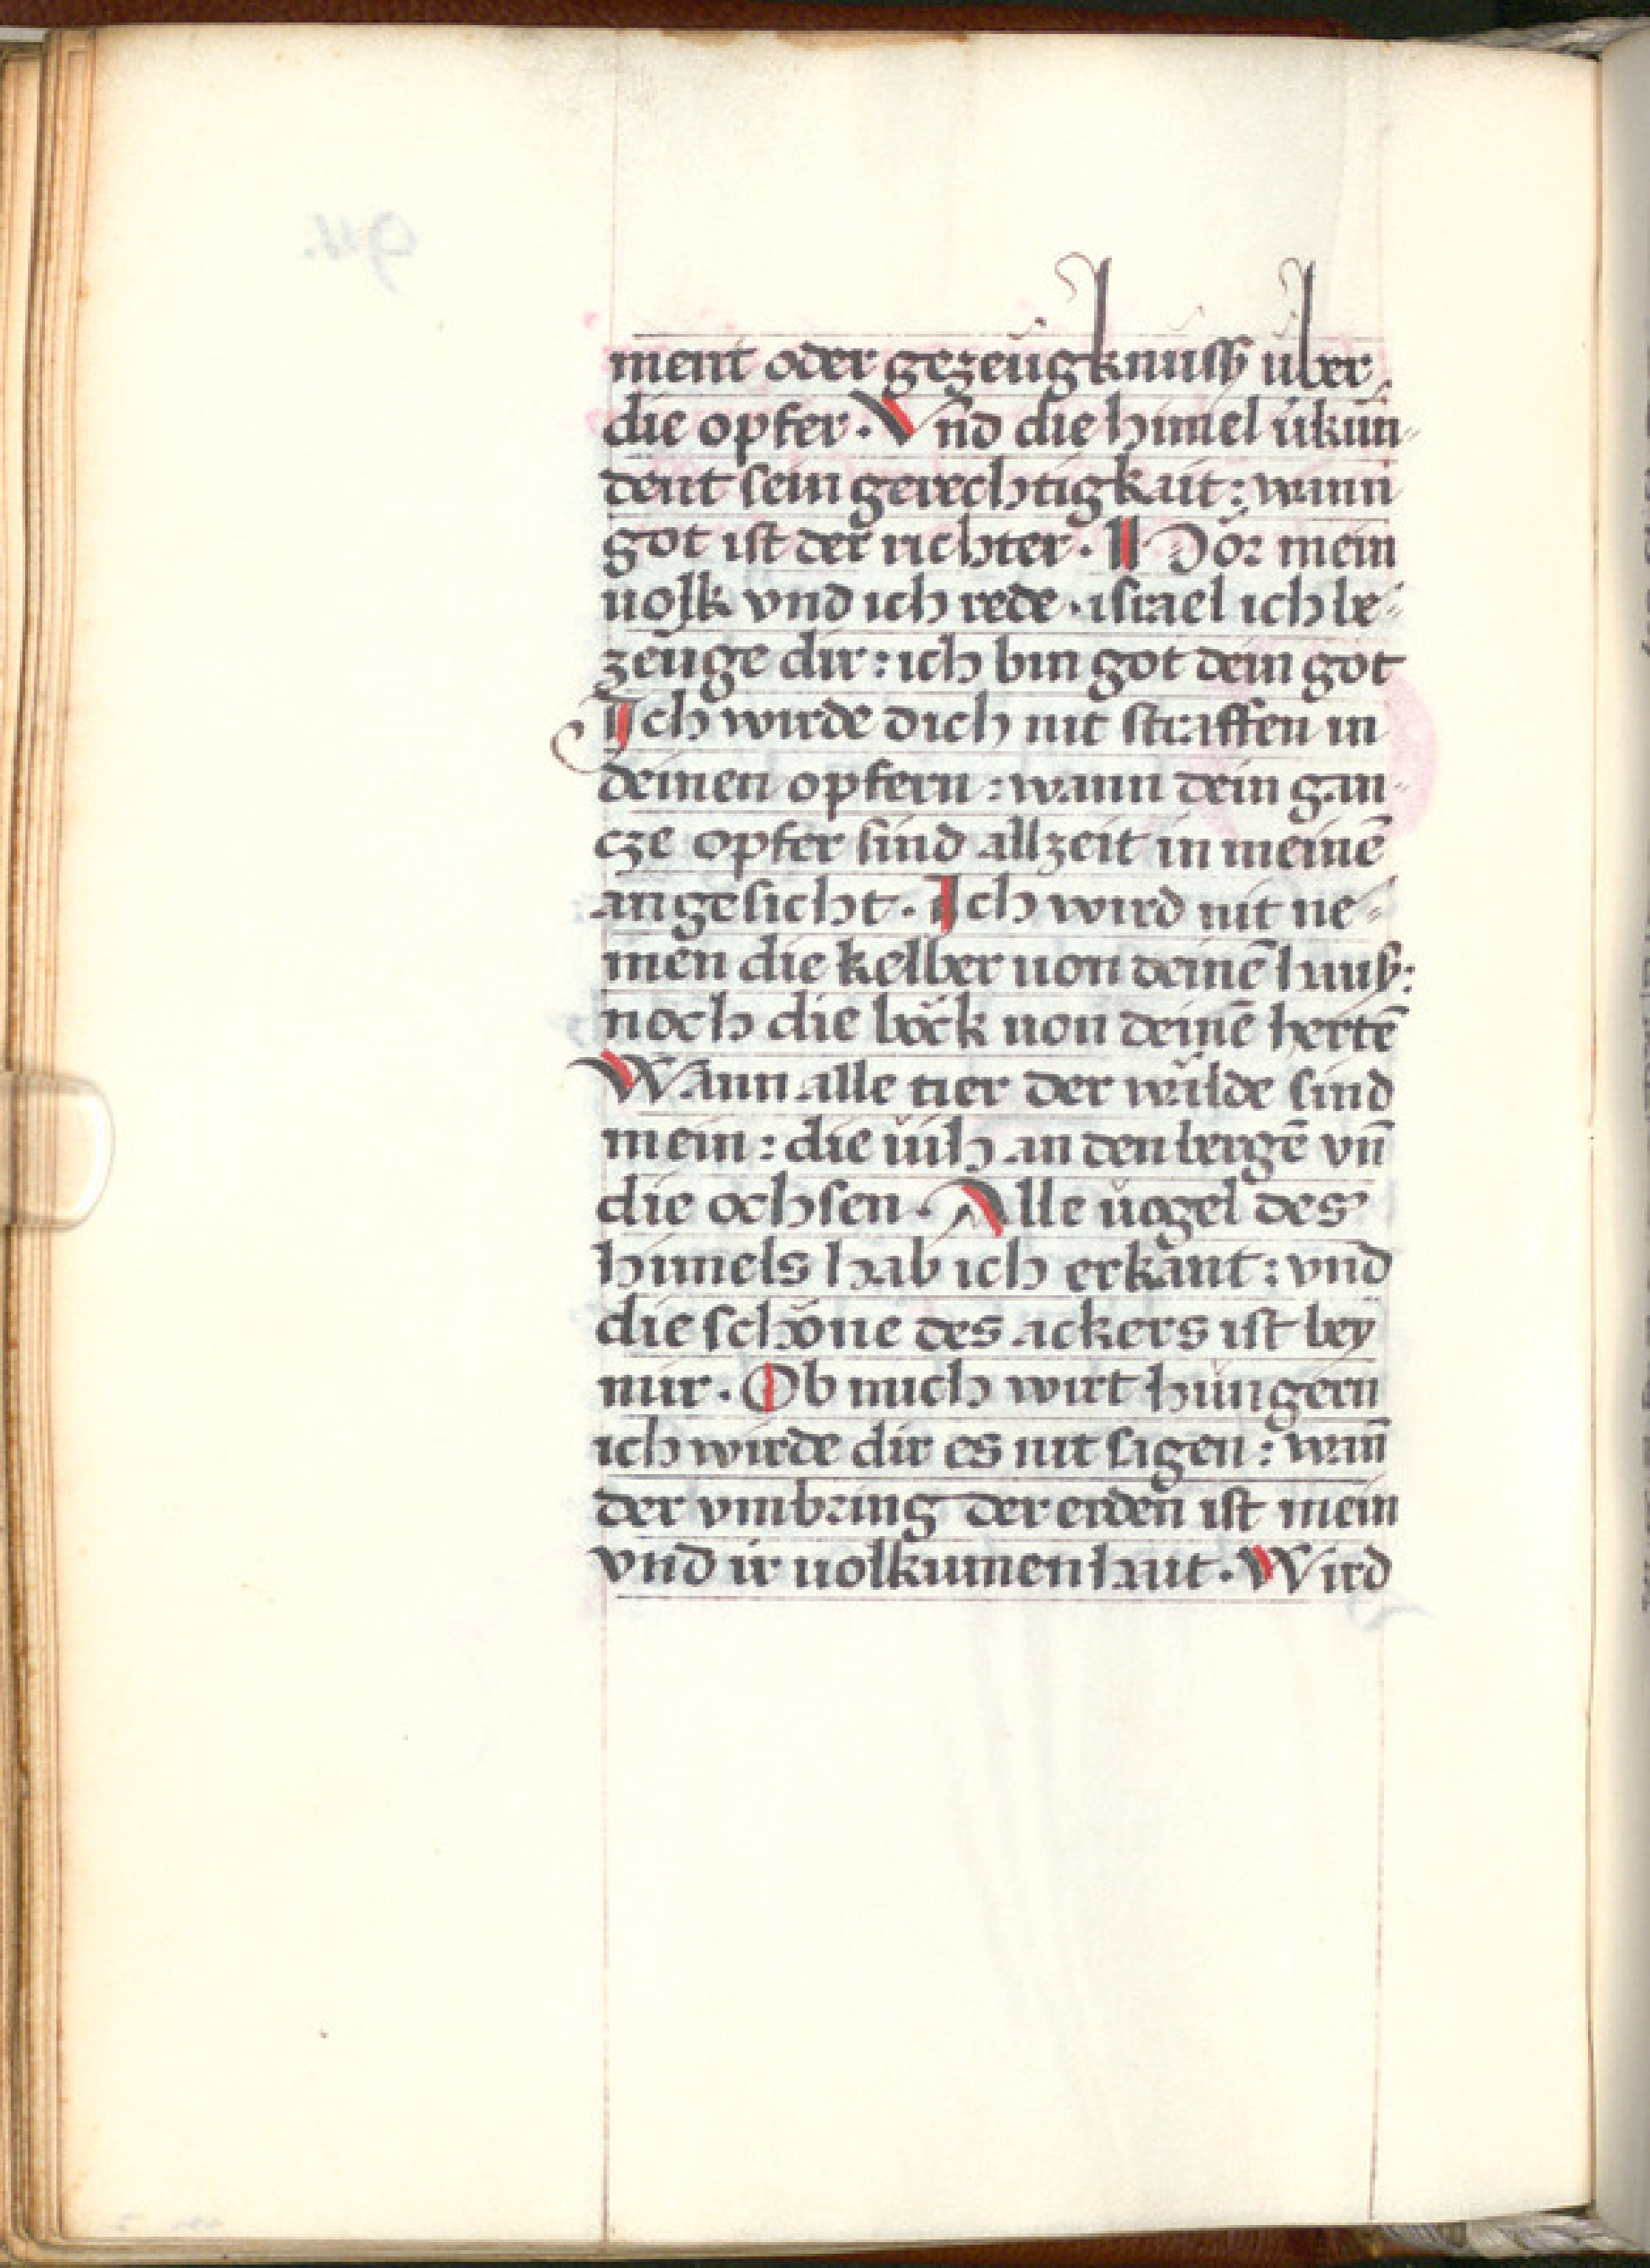 ment oder gezeügknuſß über
die opfer · Vnd die himel v̈kün⸗
dent ſein gerechtigkait : wann
got iſt der richter · Hör mein
uolk vnd ich rede · iſrael ich be⸗
zeüge dir : ich bin got dein got
Ich wirde dich nit ſtraffen in
deinen opfern : wann dein gan⸗
cze opfer ſind allzeit in meinē
angeſicht · Ich wird nit ne⸗
men die kelber uon deinē hauß :
noch die böck uon deinē hertē
Wann alle tier der wälde ſind
mein : die uih an den bergē vn̄
die ochſen · Alle uögel des
himels hab ich erkant : vnd
die ſchöne des ackers iſt bey
mir · Ob mich wirt hüngern
ich wirde dir es nit ſagen : wan̄
der vmbring der erden iſt mein
vnd ir uolkumenhait · Wird